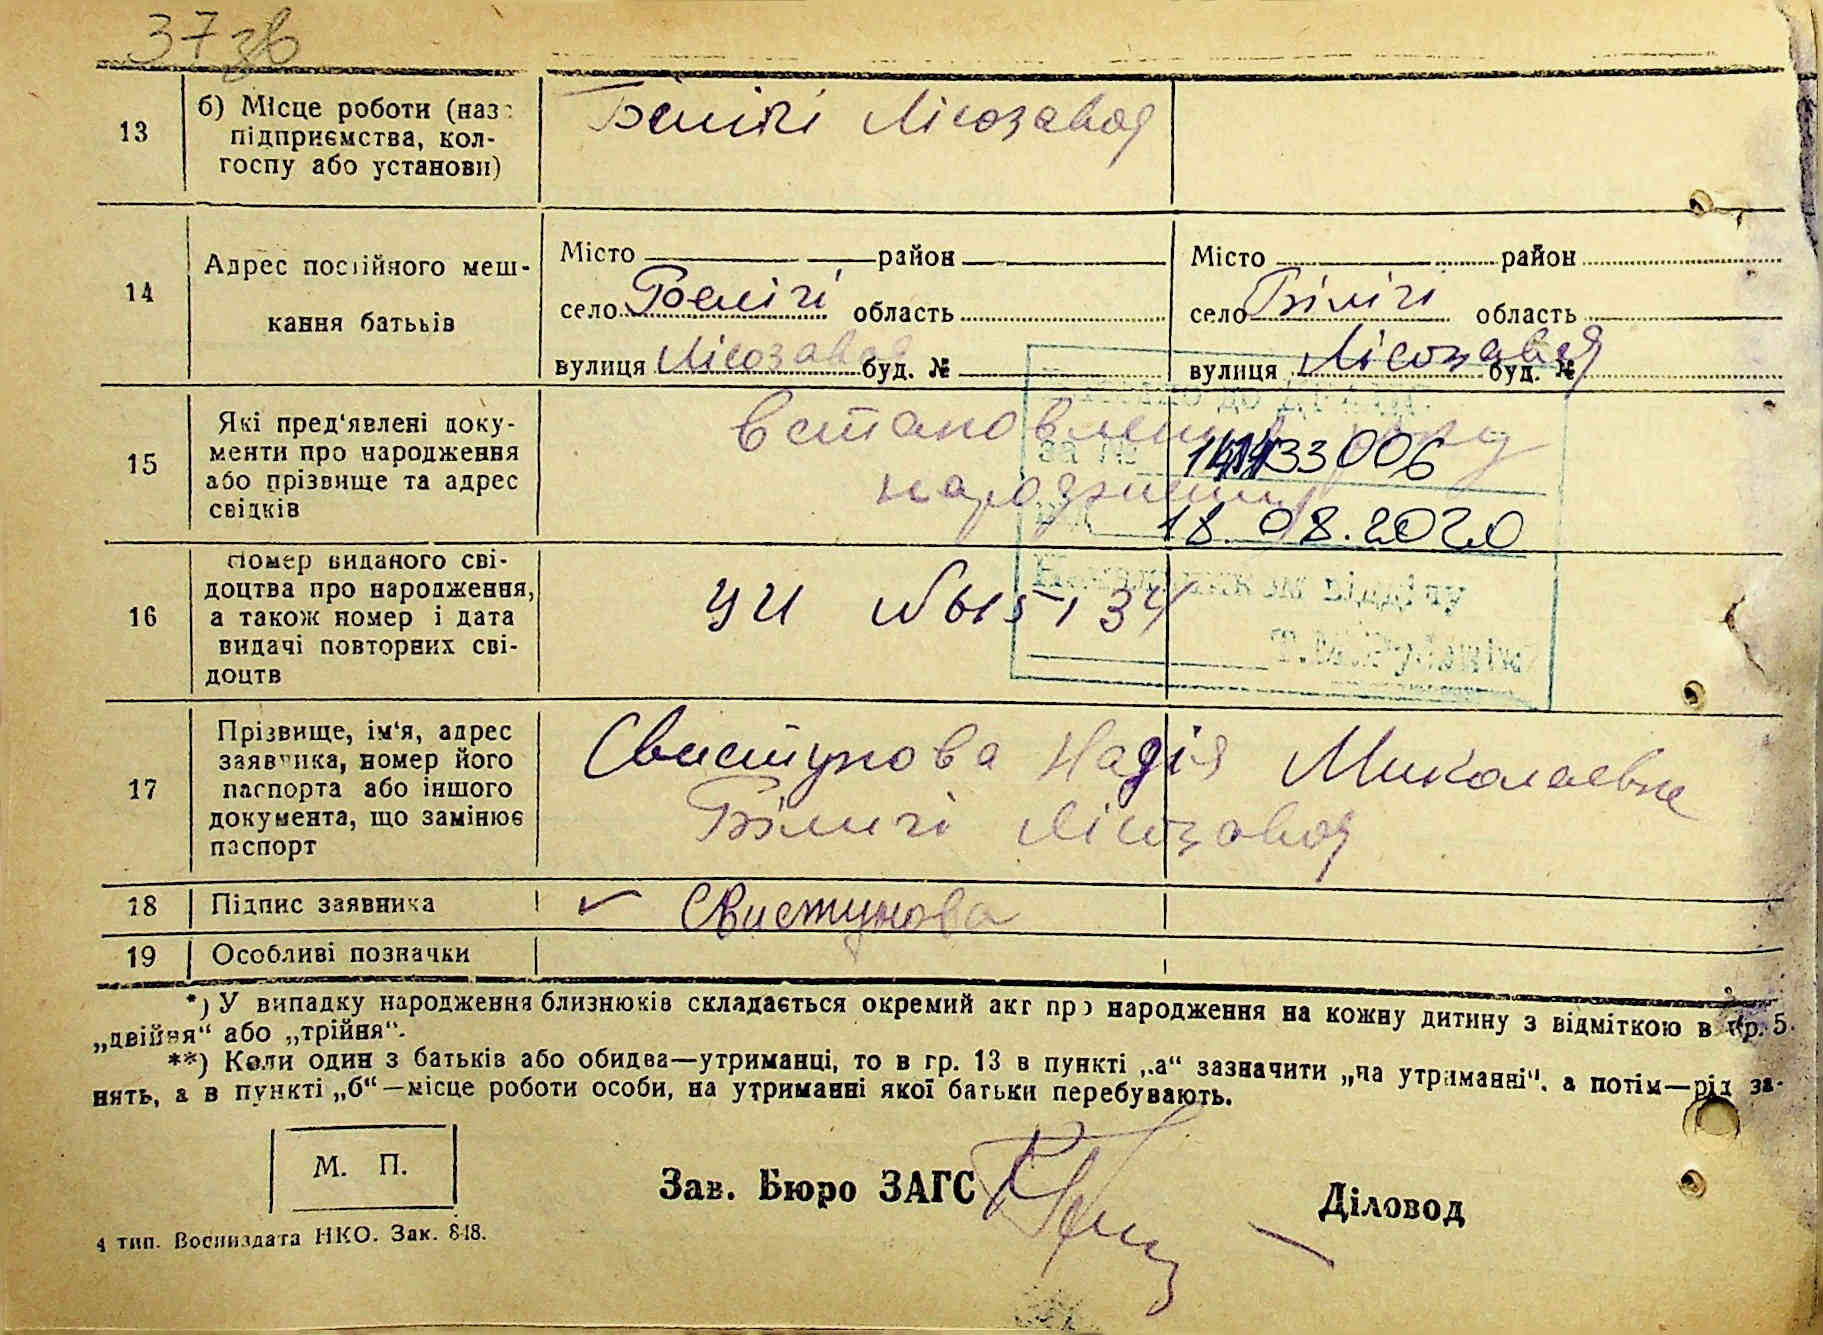 37 зв
13 б) Місце роботи (наз
підприємства, кол-
госпу або установи)
Беличі Лісозавод
14 Адрес постійного меш-
кання батьків
Місто район
село Белічі область
вулиця Лісозавод буд. №
Місто район
село Білічі область
вулиця Лісозавод буд. №
15 Які пред'явлені доку-
менти про народження
або прізвище та адрес
свідків
встановлення року
народження
за № 14433006
18.08.2020
Начальник відділу
16 Номер виданого сві-
доцтва про народження,
а також номер і дата
видачі повторних сві-
доцтв
17 Прізвище, ім'я, адрес
заявника, номер його
паспорта або іншого
документа, що замінює
паспорт
Свистунова Надія Миколаевна
Біличі Лісозавод
18 Підпис заявника
Свистунова
19 Особливі позначки
*) У випадку народження близнюків складається окремий акт про народження на кожну дитину з відміткою в гр. 5
„двійня“ або „трійня“.
**) Коли один з батьків або обидва—утриманці, то в гр. 13 в пункті „а“ зазначити „на утриманні“, а потім—рід за-
нять, а в пункті „б“—місце роботи особи, на утриманні якої батьки перебувають.
М. П.
Зав. Бюро ЗАГС
Діловод
4 тип. Воениздата НКО. Зак. 848.